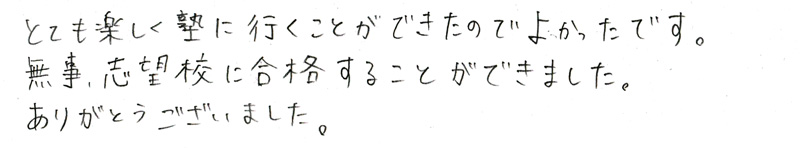 とても楽しく塾に行くことができたのでよかったです。
無事、志望校に合格することができました。
ありがとうございました。